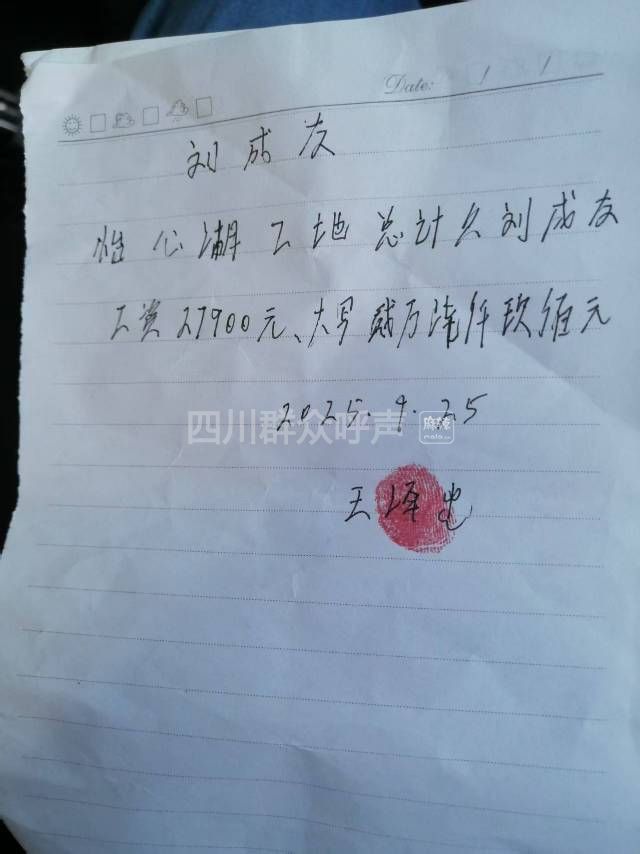 Date: / /
刘成友
怡心湖工地总计欠刘成友
工资27900元、大写贰万柒仟玖佰元
2025.9.25
四川群众呼声 麻辣 mala.cn
王泽忠